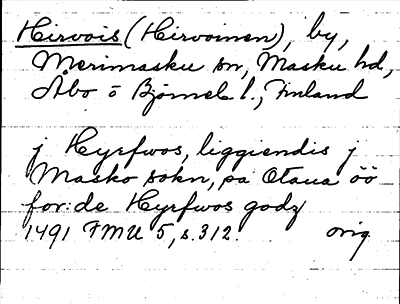 Hirvois (Hirvoinen), by,
Merimasku sn, Masku hd,
Åbo o Björneb. l., Finland
j Hyrfwos, liggiendis j
Masko sokn, pa Otaua öö
for:de Hyrfwos godz
1491 FMU 5, s. 312. orig